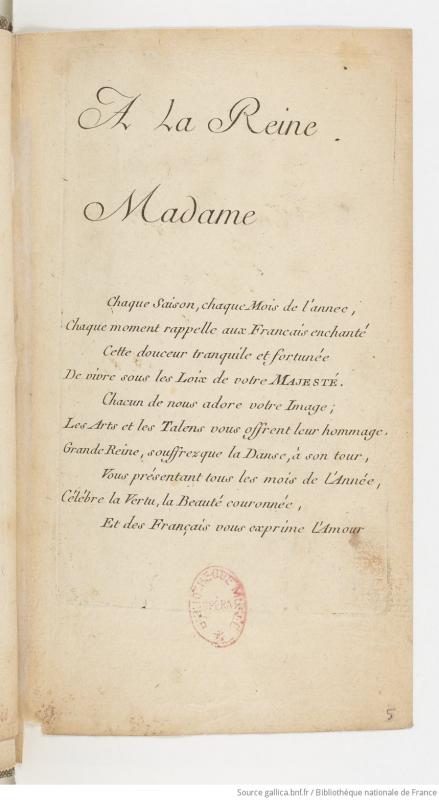 A La Reine.
Madame
Chaque Saison, chaque Mois de l'annee,
Chaque moment rappelle aux Francais enchanté
Cette douceur tranquile et fortunée
De vivre sous les Loix de votre MAJESTÉ.
Chacun de nous adore votre Image;
Les Arts et les Talens vous offrent leur hommage.
Grande Reine, souffrez que la Danse, à son tour,
Vous présentant tous les mois de l'Année,
Célébre la Vertu, la Beauté couronnée,
Et des Français vous exprime l'Amour
BIBLIOTHEQUE MUSÉE
OPÉRA
5
Source gallica.bnf.fr / Bibliothèque nationale de France